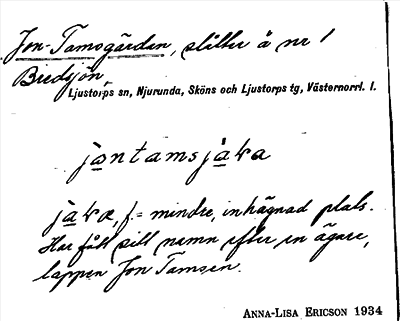 Jon-Tamsgården, slåtter å nr 1
Bredsjön,
Ljustorps sn, Njurunda, Sköns och Ljustorps tg, Västernorrl. l.
jòntamsjàka
jàka, f. = mindre, inhägnad plats.
Har fått sitt namn efter en ägare,
lappen Jon Tamsen.
ANNA-LISA ERICSON 1934